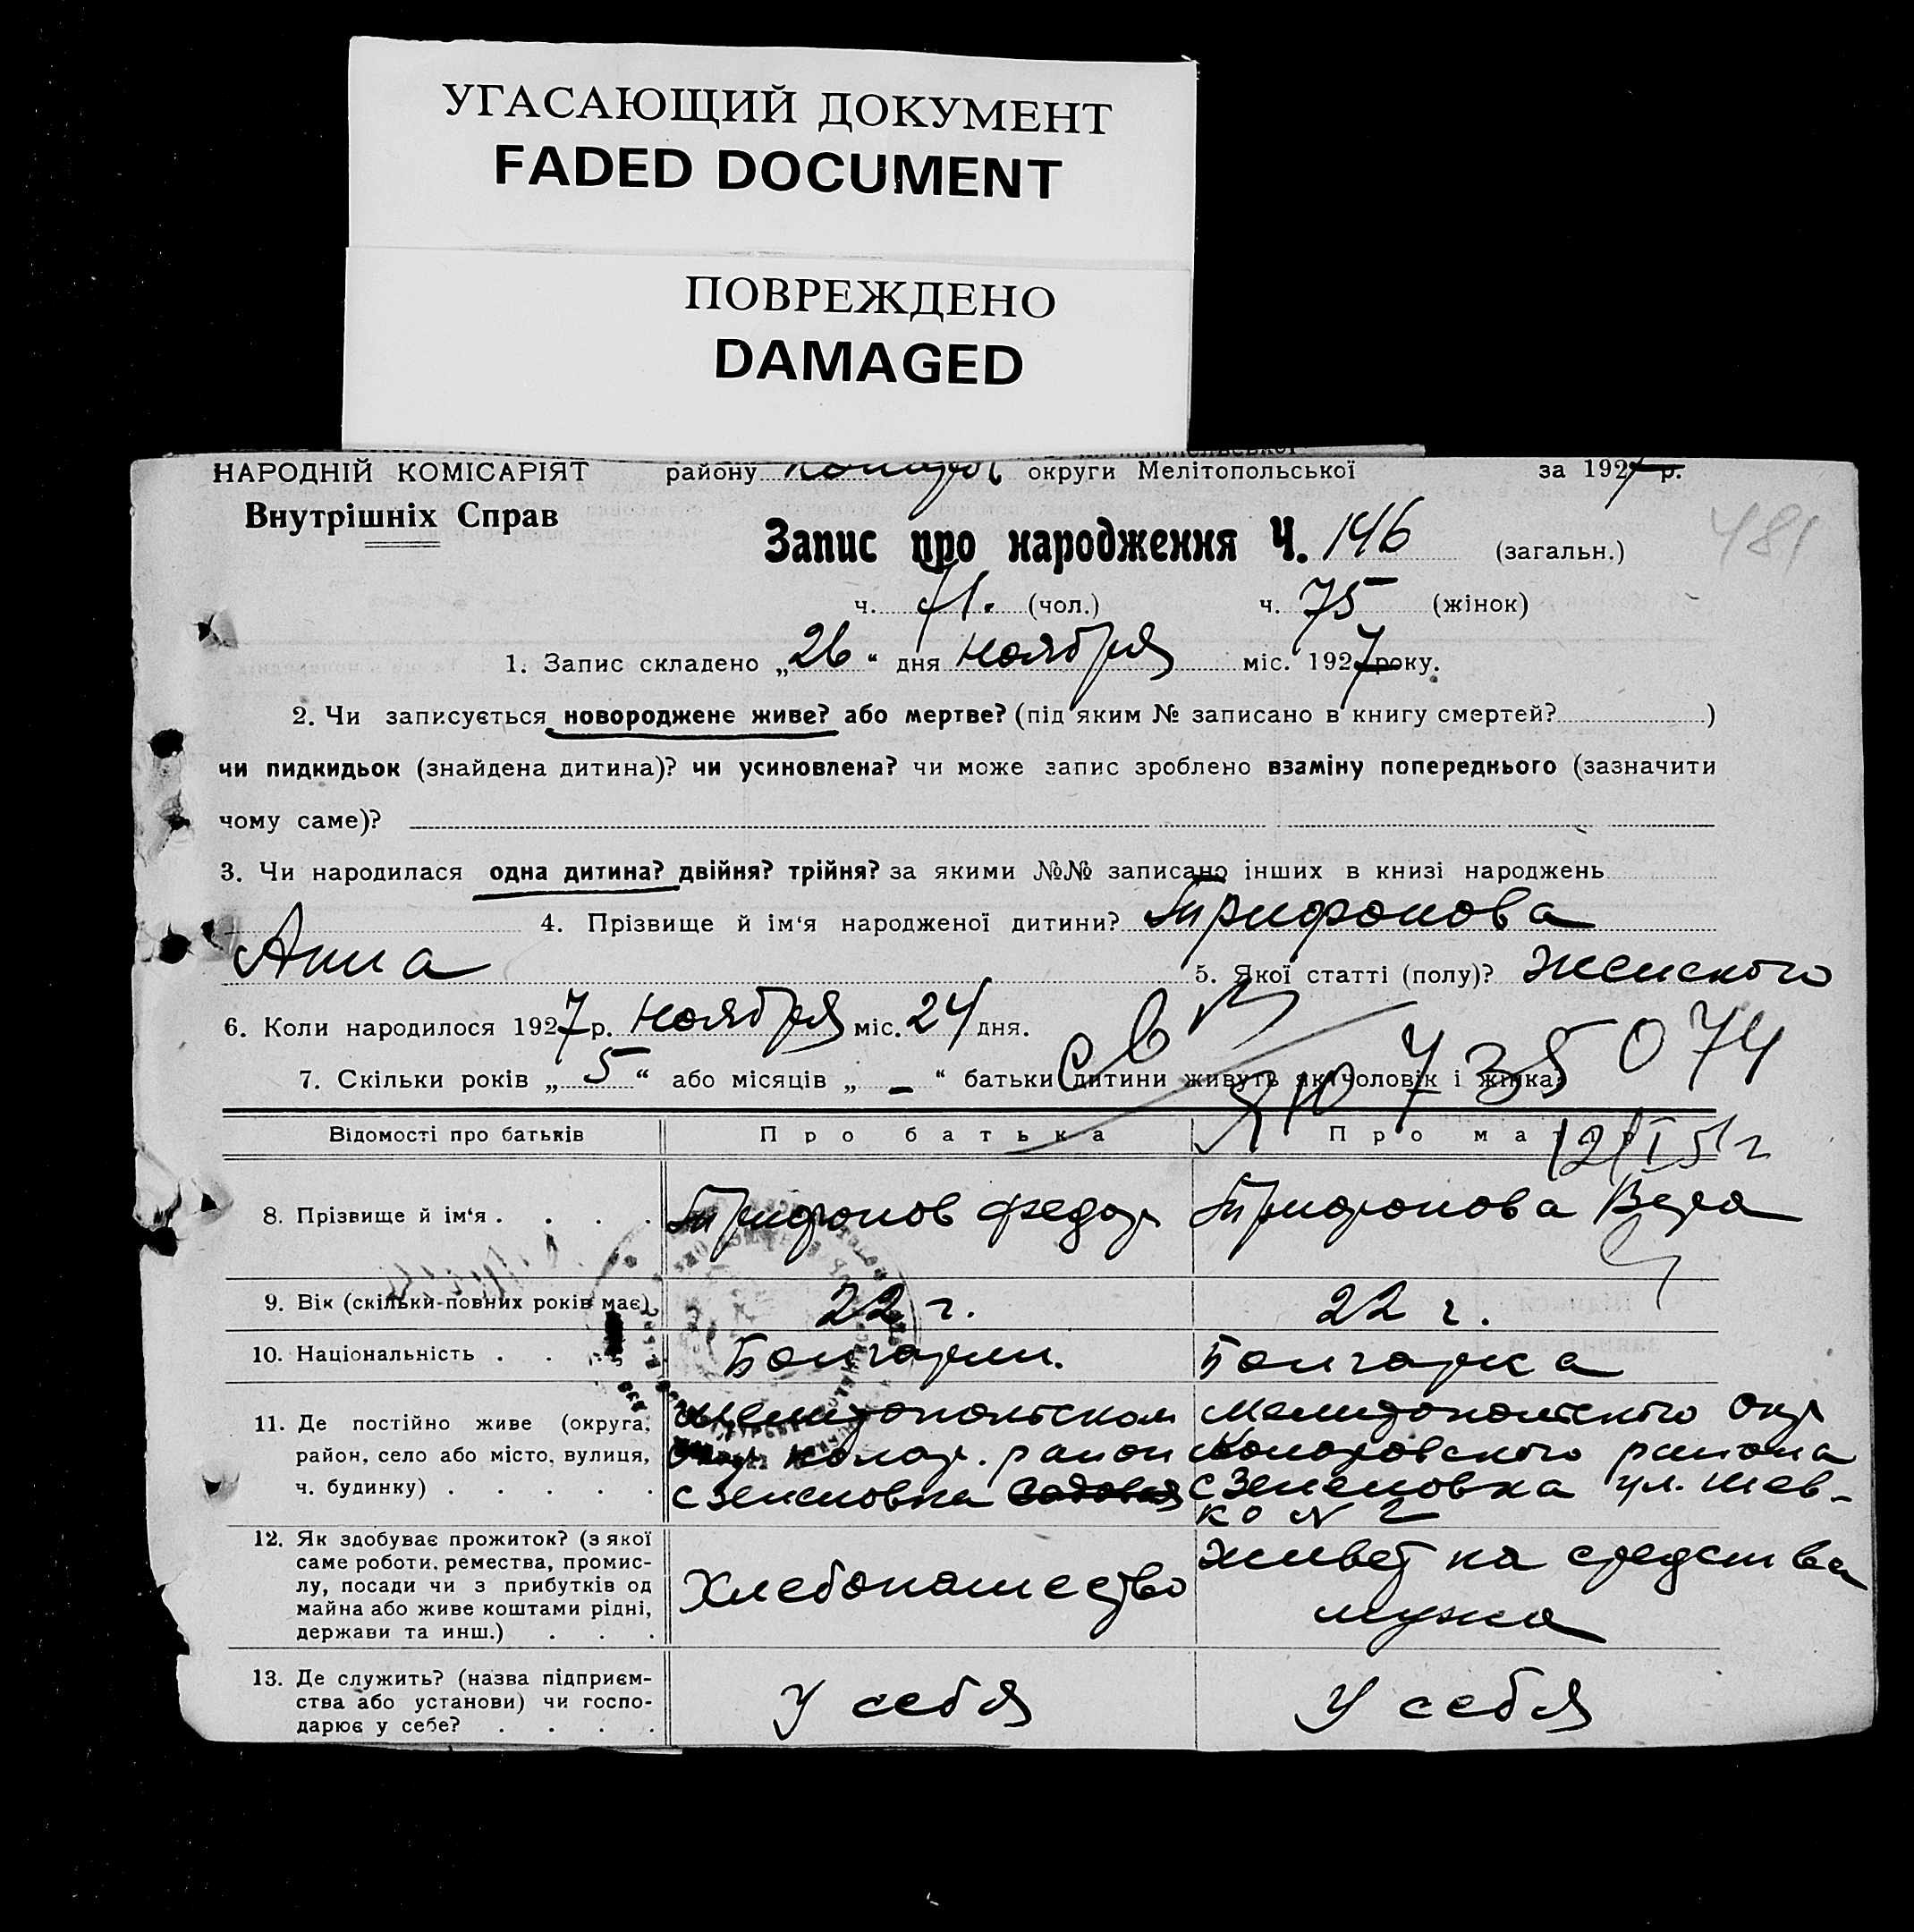 УГАСАЮЩИЙ ДОКУМЕНТ
FADED DOCUMENT
ПОВРЕЖДЕНО
DAMAGED
НАРОДНІЙ КОМІСАРІЯТ району округи Мелітопольської за 1927 р.
Внутрішніх Справ
481
Запис про народження Ч. 146 (загальн.)
ч. 71. (чол.) ч. 75 (жінок)
1. Запис складено „26“ дня ноября міс. 1927 року.
2. Чи записується новороджене живе? або мертве? (під яким № записано в книгу смертей? )
чи пидкидьок (знайдена дитина)? чи усиновлена? чи може запис зроблено взаміну попереднього (зазначити
чому саме)?
3. Чи народилася одна дитина? двійня? трійня? за якими №№ записано інших в книзі народжень
4. Прізвище й ім‘я народженої дитини? Трифонова
Анна 5. Якої статті (полу)? женского
6. Коли народилося 1927 р. ноября міс. 24 дня.
7. Скільки років „5“ або місяців „–“ батьки дитини живуть як чоловік і жінка
св ЯЮ 735074
12/I 51 г
Відомості про батьків Про батька Про матір
8. Прізвище й ім‘я . . . . Трифонов Федор Трифонова Вера
9. Вік (скільки повних років має) 22 г. 22 г.
10. Національність . . Болгарин. Болгарка
11. Де постійно живе (округа, район, село або місто, вулиця, ч. будинку) . . . . .
Мелитопольском окр. Колар. район
с Зеленовка Садовая
Мелитопольского окр
Коларовского района
с Зеленовка ул. Шев-
ко № 2
12. Як здобуває прожиток? (з якої
саме роботи, ремества, промис-
лу, посади чи з прибутків од
майна або живе коштами рідні,
держави та инш.) . . .
Хлебопашество
живет на средства
мужа
13. Де служить? (назва підприєм-
ства або установи) чи госпо-
дарює у себе? . . . .
У себя
У себя